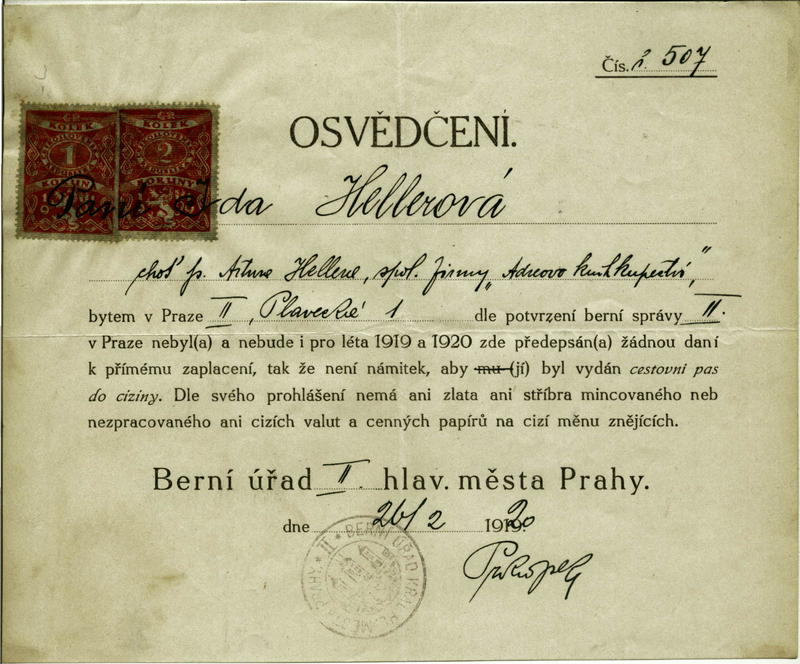 Čís. 507
OSVĚDČENÍ.
ČR
KOLEK
ČESKOSLOVENSKÁ
1
REPUBLIKA
KORUNY
ČR
KOLEK
ČESKOSLOVENSKÁ
2
REPUBLIKA
KORUNY
Paní Ida Hellerová
choť p. Artura Hellera, spol. firmy „Adreovo knihkupectví,"
bytem v Praze II, Plavecká 1 dle potvrzení berní správy II.
v Praze nebyl(a) a nebude i pro léta 1919 a 1920 zde předepsán(a) žádnou daní
k přímému zaplacení, tak že není námitek, aby mu (jí) byl vydán cestovní pas
do ciziny. Dle svého prohlášení nemá ani zlata ani stříbra mincovaného neb
nezpracovaného ani cizích valut a cenných papírů na cizí měnu znějících.
Berní úřad II. hlav. města Prahy.
dne 26/2 1920
BERNÍ ÚŘAD KRÁL. HL. MĚSTA PRAHY. * II *